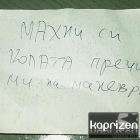 МАХНИ СИ
КОЛАТА ПРЕЧИ
МИ НА МАНЕВР
koprizen